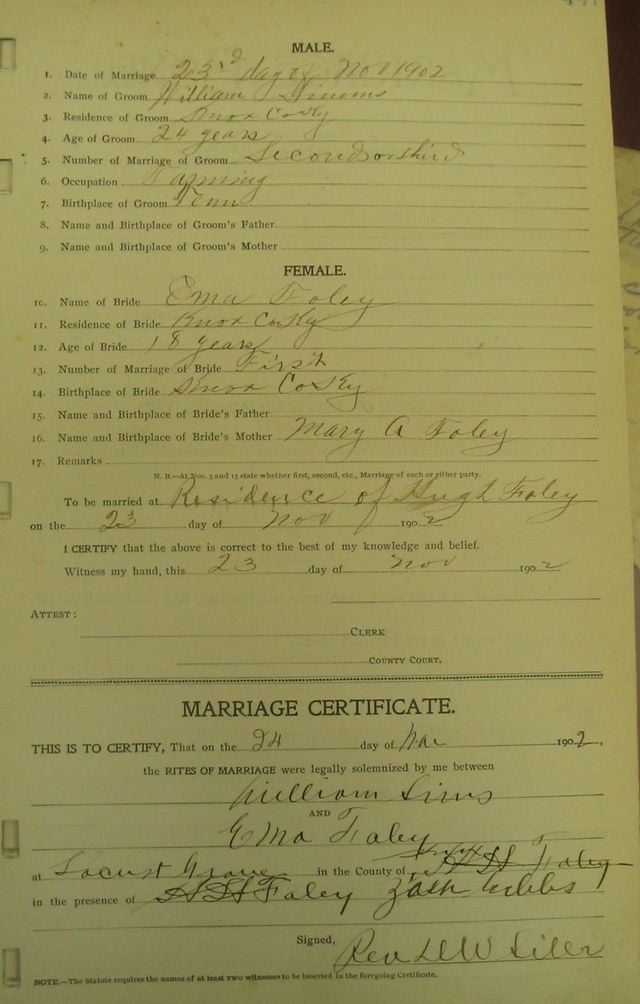 MALE.
1. Date of Marriage 23rd day of Nov 1902
2. Name of Groom William Simms
3. Residence of Groom Knox Co Ky
4. Age of Groom 24 years
5. Number of Marriage of Groom Second or third
6. Occupation Farming
7. Birthplace of Groom Tenn
8. Name and Birthplace of Groom's Father
9. Name and Birthplace of Groom's Mother
FEMALE.
10. Name of Bride Ema Foley
11. Residence of Bride Knox Co Ky
12. Age of Bride 18 years
13. Number of Marriage of Bride First
14. Birthplace of Bride Knox Co Ky
15. Name and Birthplace of Bride's Father
16. Name and Birthplace of Bride's Mother Mary A Foley
17. Remarks
N. B.—At Nos. 5 and 13 state whether first, second, etc., Marriage of each or either party.
To be married at Residence of Hugh Foley
on the 23 day of Nov 1902
I CERTIFY that the above is correct to the best of my knowledge and belief.
Witness my hand, this 23 day of Nov 1902
ATTEST:
CLERK
COUNTY COURT.
MARRIAGE CERTIFICATE.
THIS IS TO CERTIFY, That on the 24 day of 1902,
the RITES OF MARRIAGE were legally solemnized by me between
William Sims
AND
Ema Foley
at Locust Grove in the County of Foley
in the presence of Foley Zach
Signed, Rev
NOTE.—The Statute requires the names of at least two witnesses to be inserted in the foregoing Certificate.